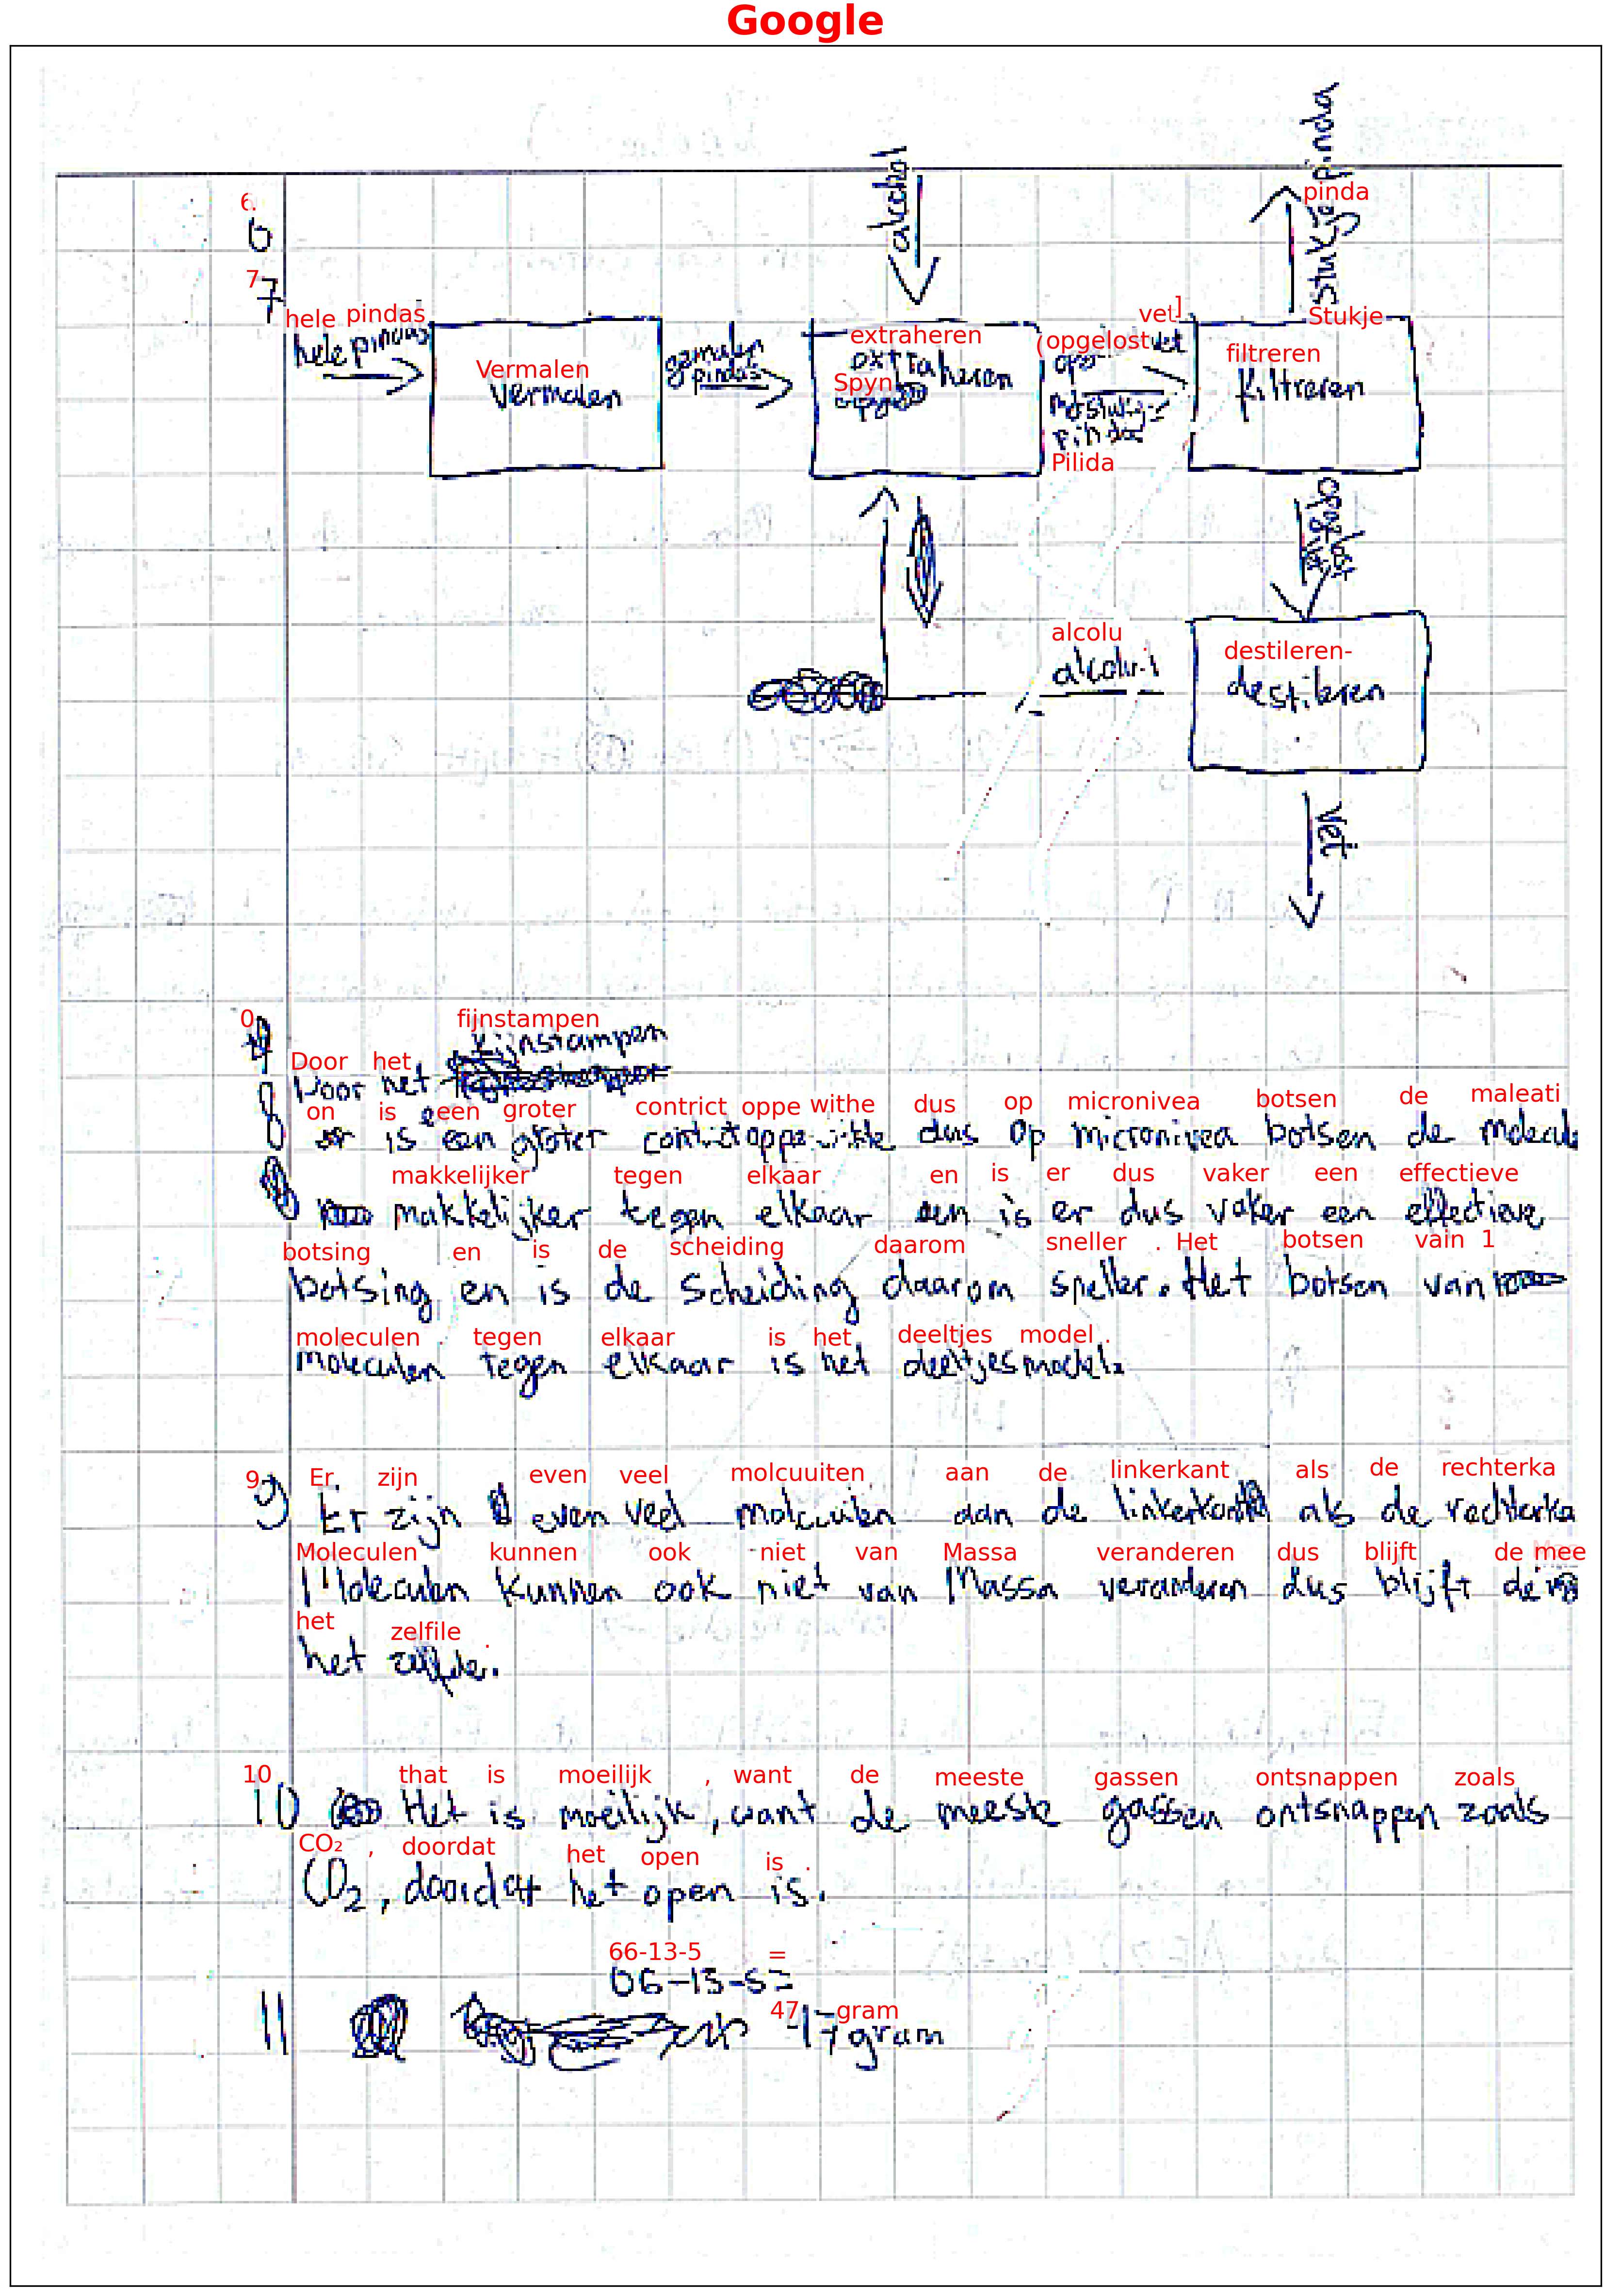 Google
6.
6
7
7
alcohol
stukje pinda
pinda
hele pindas
hele pindas
Vermalen
Vermalen
gemalen
pindas
extraheren
extraheren
Spyn
vet]
(opgelost
vet
met stukje
pinda
Pilida
Stukje
filtreren
filtreren
opgelost
alcolu
destileren-
destileren
vet
0
fijnstampen
fijnstampen
Door het
Door het
8
on is een groter contrict oppe withe dus op micronivea botsen de maleati
er is een groter contact oppervlakte dus op micronivea botsen de molecule
makkelijker tegen elkaar en is er dus vaker een effectieve
makkelijker tegen elkaar en is er dus vaker een effectieve
botsing en is de scheiding daarom sneller . Het botsen vain 1
botsing en is de scheiding daarom sneller. Het botsen van
moleculen . tegen elkaar is het deeltjes model .
moleculen tegen elkaar is het deeltjesmodel.
9 Er zijn even veel molcuuiten aan de linkerkant als de rechterka
9 Er zijn even veel moleculen aan de linkerkant als de rechterka
Moleculen kunnen ook niet van Massa veranderen dus blijft de mee
Moleculen kunnen ook niet van Massa veranderen dus blijft de
het zelfile .
het zelfde.
10 that is moeilijk , want de meeste gassen ontsnappen zoals
10 Het is moeilijk, want de meeste gassen ontsnappen zoals
CO₂ , doordat het open is .
CO₂, doordat het open is.
66-13-5 =
66-13-5=
47 gram
11 47 gram